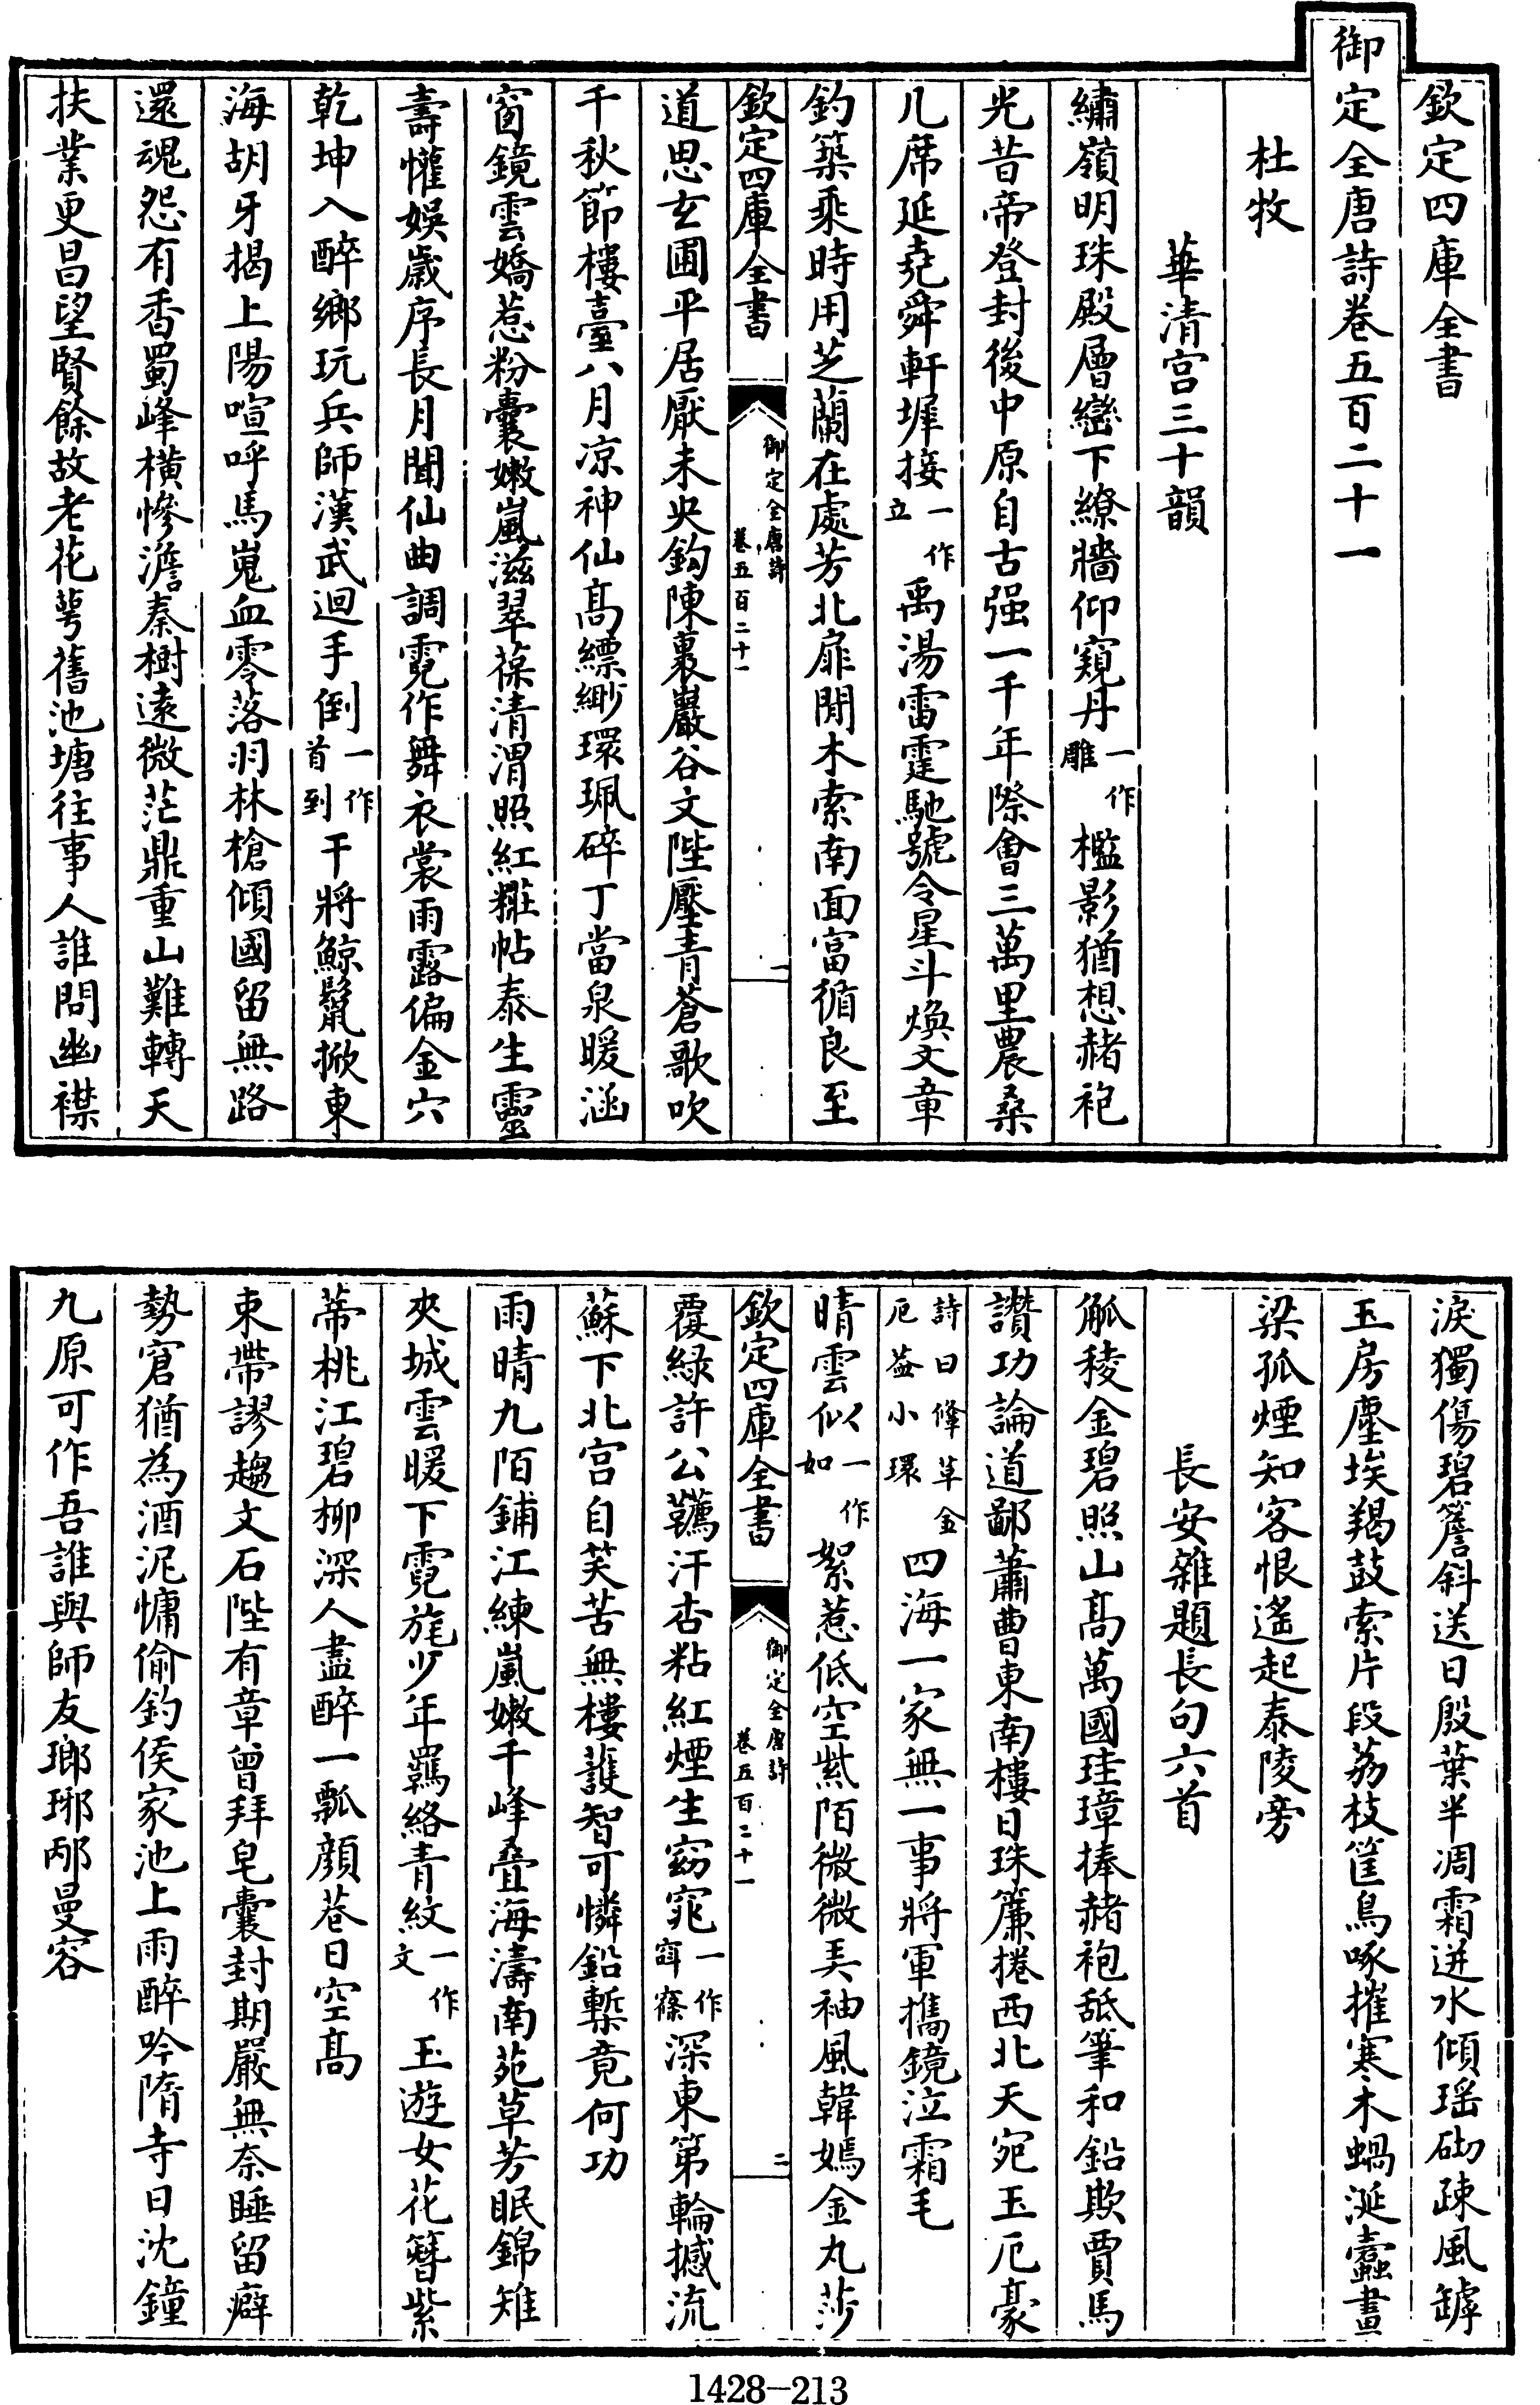 欽定四庫全書
御定全唐詩卷五百二十一
杜牧
華清宮三十韻
繡嶺明珠殿層巒下繚牆仰窺丹一作雕檻影猶想赭袍
光昔帝登封後中原自古强一千年際會三萬里農桑
几席延堯舜軒墀接一作立禹湯雷霆馳號令星斗煥文章
釣築乘時用芝蘭在處芳北扉閒木索南面富循良至
欽定四庫全書
御定全唐詩
卷五百二十一
一
道思玄圃平居厭未央鈎陳裹巖谷文陛壓青蒼歌吹
千秋節樓臺八月凉神仙高縹緲環珮碎丁當泉暖涵
窗鏡雲嬌惹粉囊嫩嵐滋翠葆清渭照紅糚帖泰生靈
壽懽娛歲序長月聞仙曲調霓作舞衣裳雨露偏金穴
乾坤入醉鄉玩兵師漢武迴手倒一作首到干將鯨鬣掀東
海胡牙揭上陽喧呼馬嵬血零落羽林槍傾國留無路
還魂怨有香蜀峰橫慘澹秦樹遠微茫鼎重山難轉天
扶業更昌望賢餘故老花萼舊池塘往事人誰問幽襟
淚獨傷碧簷斜送日殷葉半凋霜迸水傾瑶砌疎風罅
玉房塵埃羯鼓索片段荔枝筐鳥啄摧寒木蝸涎蠹畫
梁孤煙知客恨遙起泰陵旁
長安雜題長句六首
觚稜金碧照山高萬國珪璋捧赭袍舐筆和鉛欺賈馬
讚功論道鄙蕭曹東南樓日珠簾捲西北天宛玉厄豪
詩曰鞗革金厄葢小環四海一家無一事將軍攜鏡泣霜毛
晴雲似一作如絮惹低空紫陌微微弄袖風韓嫣金丸莎
欽定四庫全書
御定全唐詩
卷五百二十一
二
覆綠許公韉汗杏粘紅煙生窈窕一作窵窱深東第輪撼流
蘇下北宮自笑苦無樓護智可憐鉛槧竟何功
雨晴九陌鋪江練嵐嫩千峰疊海濤南苑草芳眠錦雉
夾城雲暖下霓旄少年羈絡青紋一作文玉遊女花簪紫
蒂桃江碧柳深人盡醉一瓢顔巷日空高
束帶謬趨文石陛有章曾拜皂囊封期嚴無奈睡留癖
勢窘猶為酒泥慵偷釣侯家池上雨醉吟隋寺日沈鐘
九原可作吾誰與師友瑯琊邴曼容
1428—213